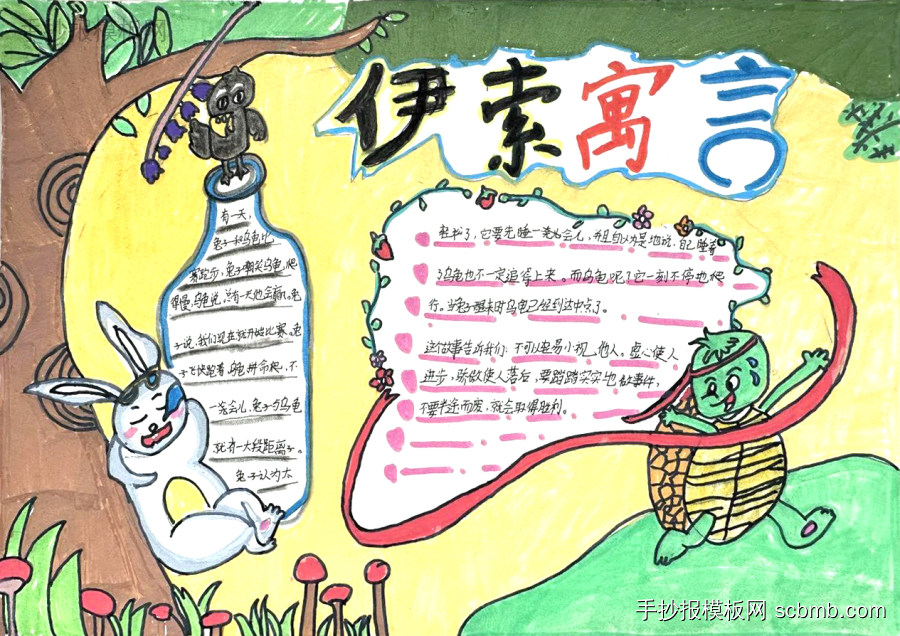 伊索寓言
有一天,
兔子和乌龟比
赛跑步,兔子嘲笑乌龟爬
得慢,乌龟说,总有一天他会赢。兔
子说,我们现在就开始比赛。兔
子飞快跑着,乌龟拼命爬,不
一会儿,兔子与乌龟
已有一大段距离了。
兔子认为太
轻松了,它要先睡一会儿,并且自以为是地说,自己睡着
了乌龟也不一定追得上来。而乌龟呢了它一刻不停也爬
行。当兔子醒来时乌龟已经到达终点了。
这个故事告诉我们:不可以轻易小视他人。虚心使人
进步,骄傲使人落后,要踏踏实实地做事件,
不要半途而废,就会取得胜利。
手抄报模板网 scbmb.com